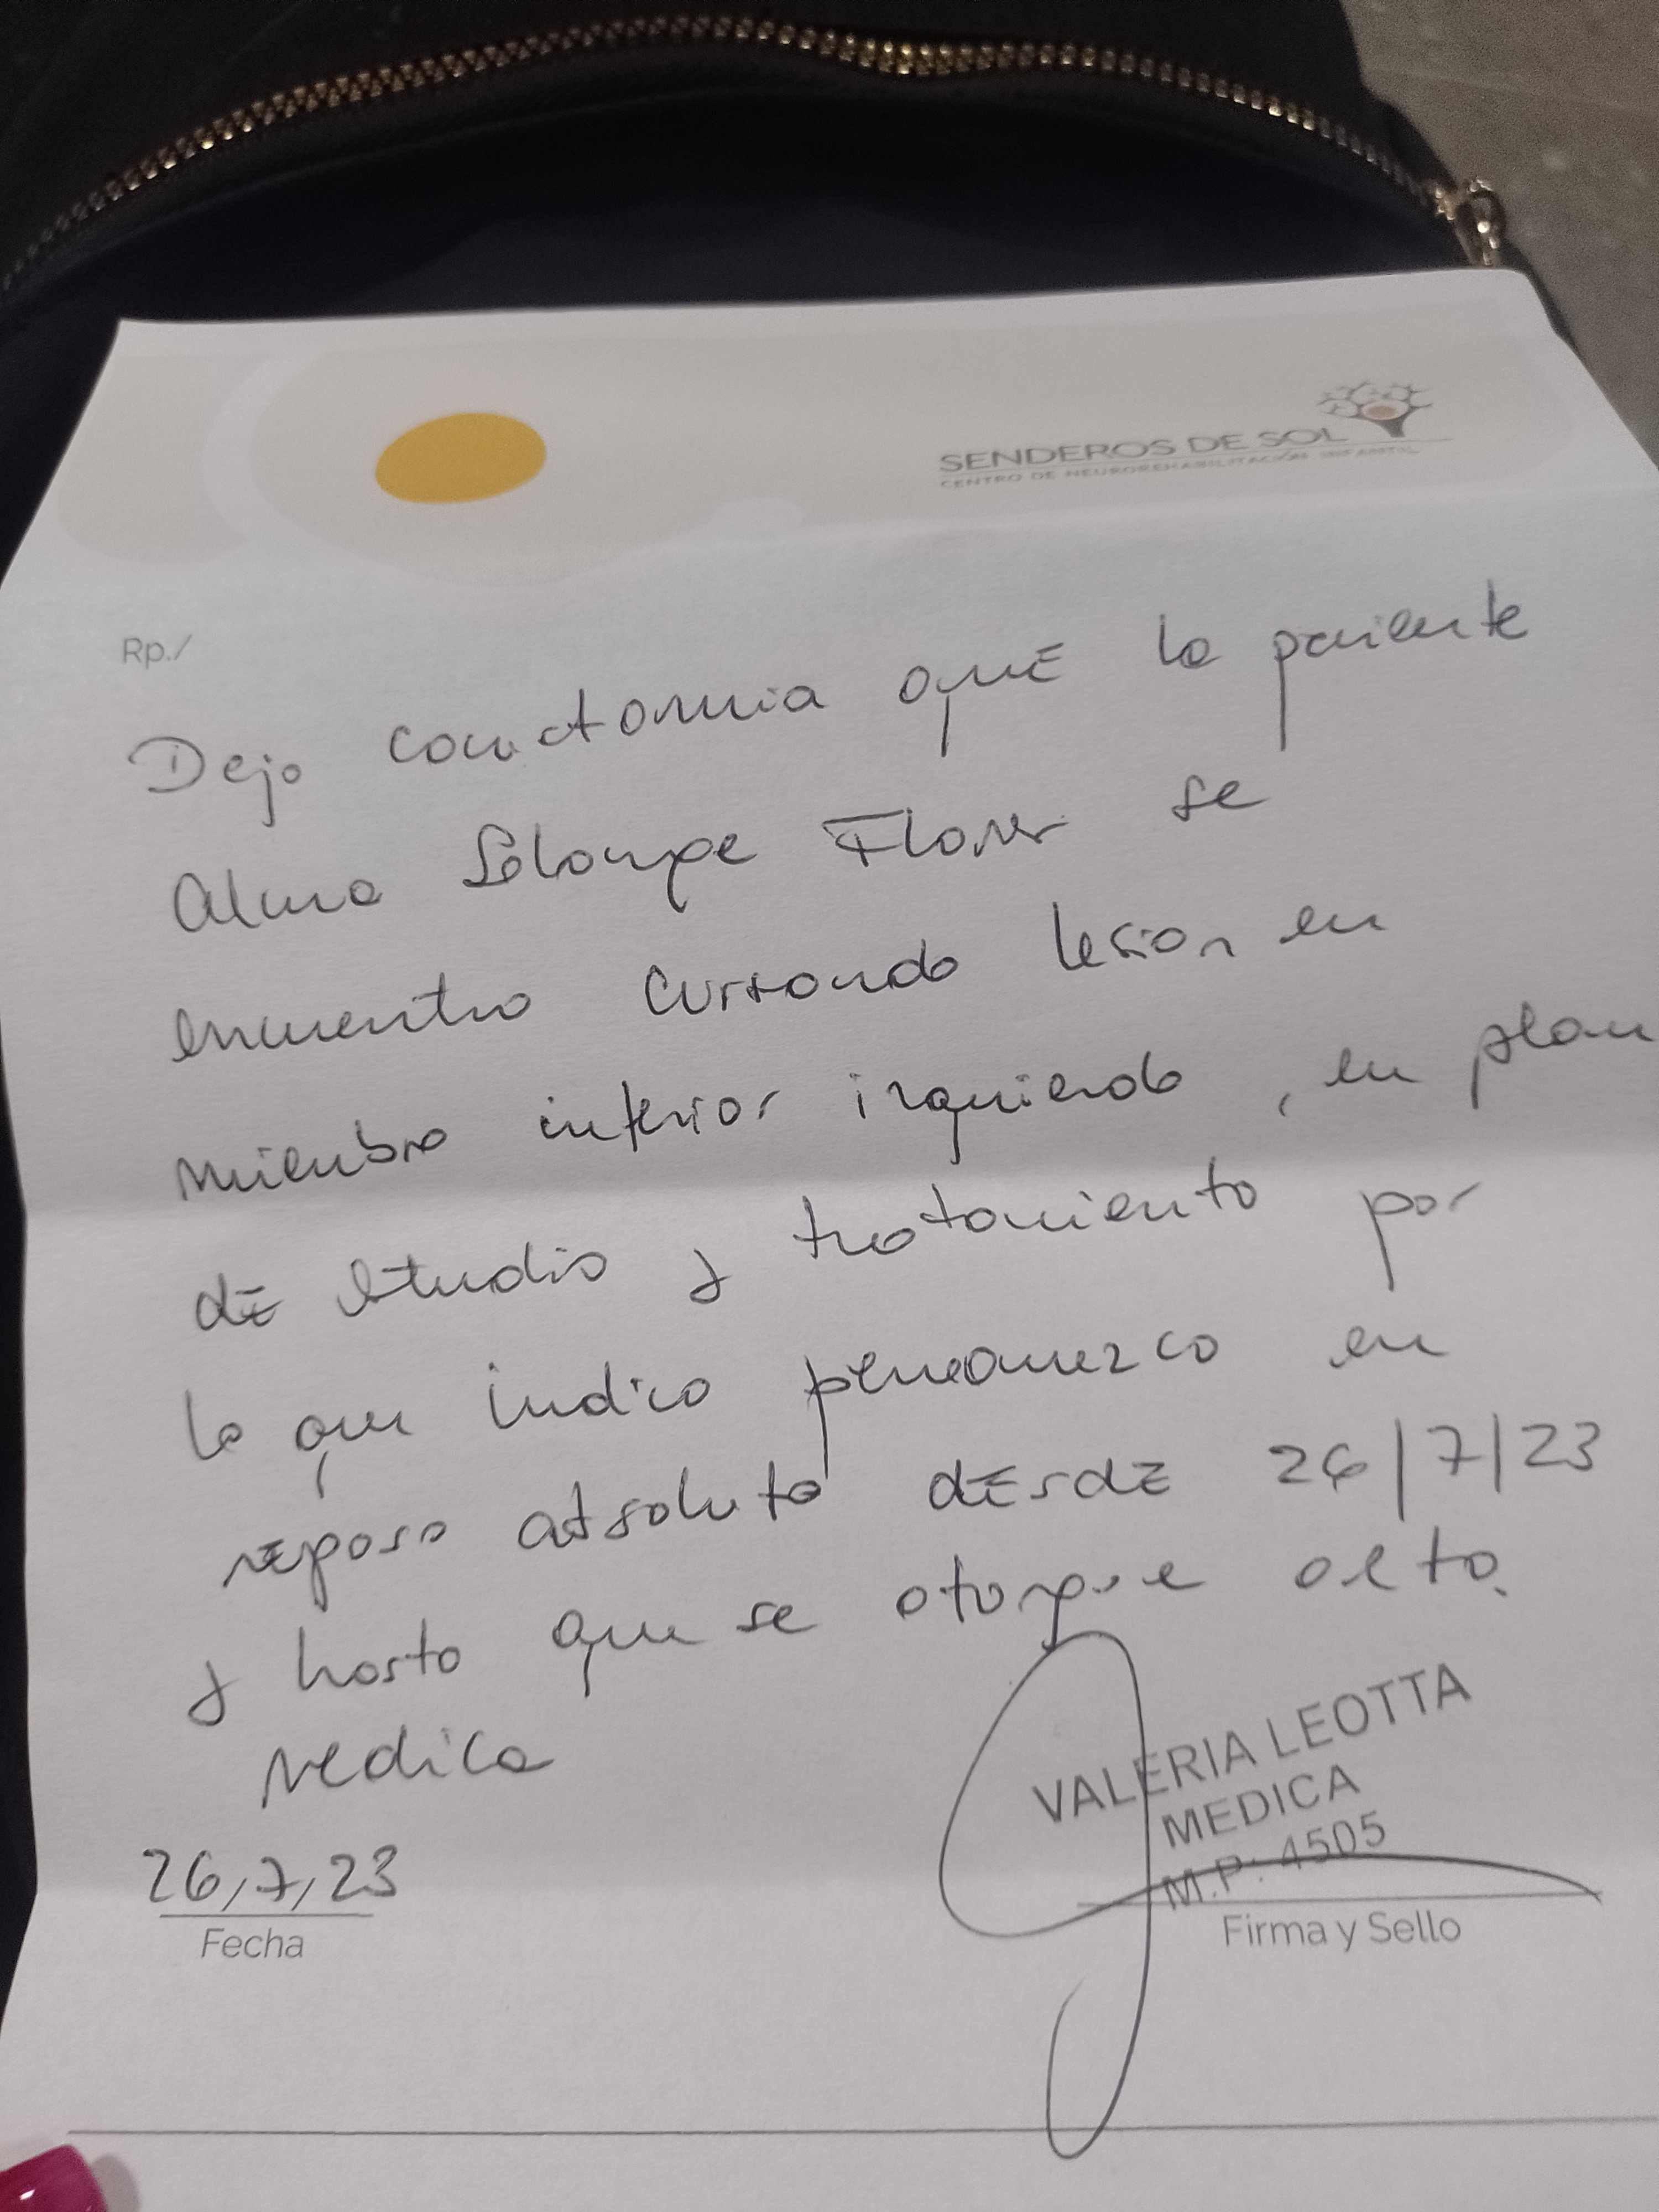 SENDEROS DE SOL
CENTRO DE NEUROREHABILITACIÓN INFANTIL
Rp./
Dejo constancia que la paciente
Alma Flores se
encuentra cursando lesion en
miembro inferior izquierdo, en plan
de estudio y tratamiento por
lo que indico permanezca en
reposo absoluto desde 26/7/23
y hasta que se otorgue alta
medica
VALERIA LEOTTA
MEDICA
M.P: 4505
26,7,23
Fecha
Firma y Sello